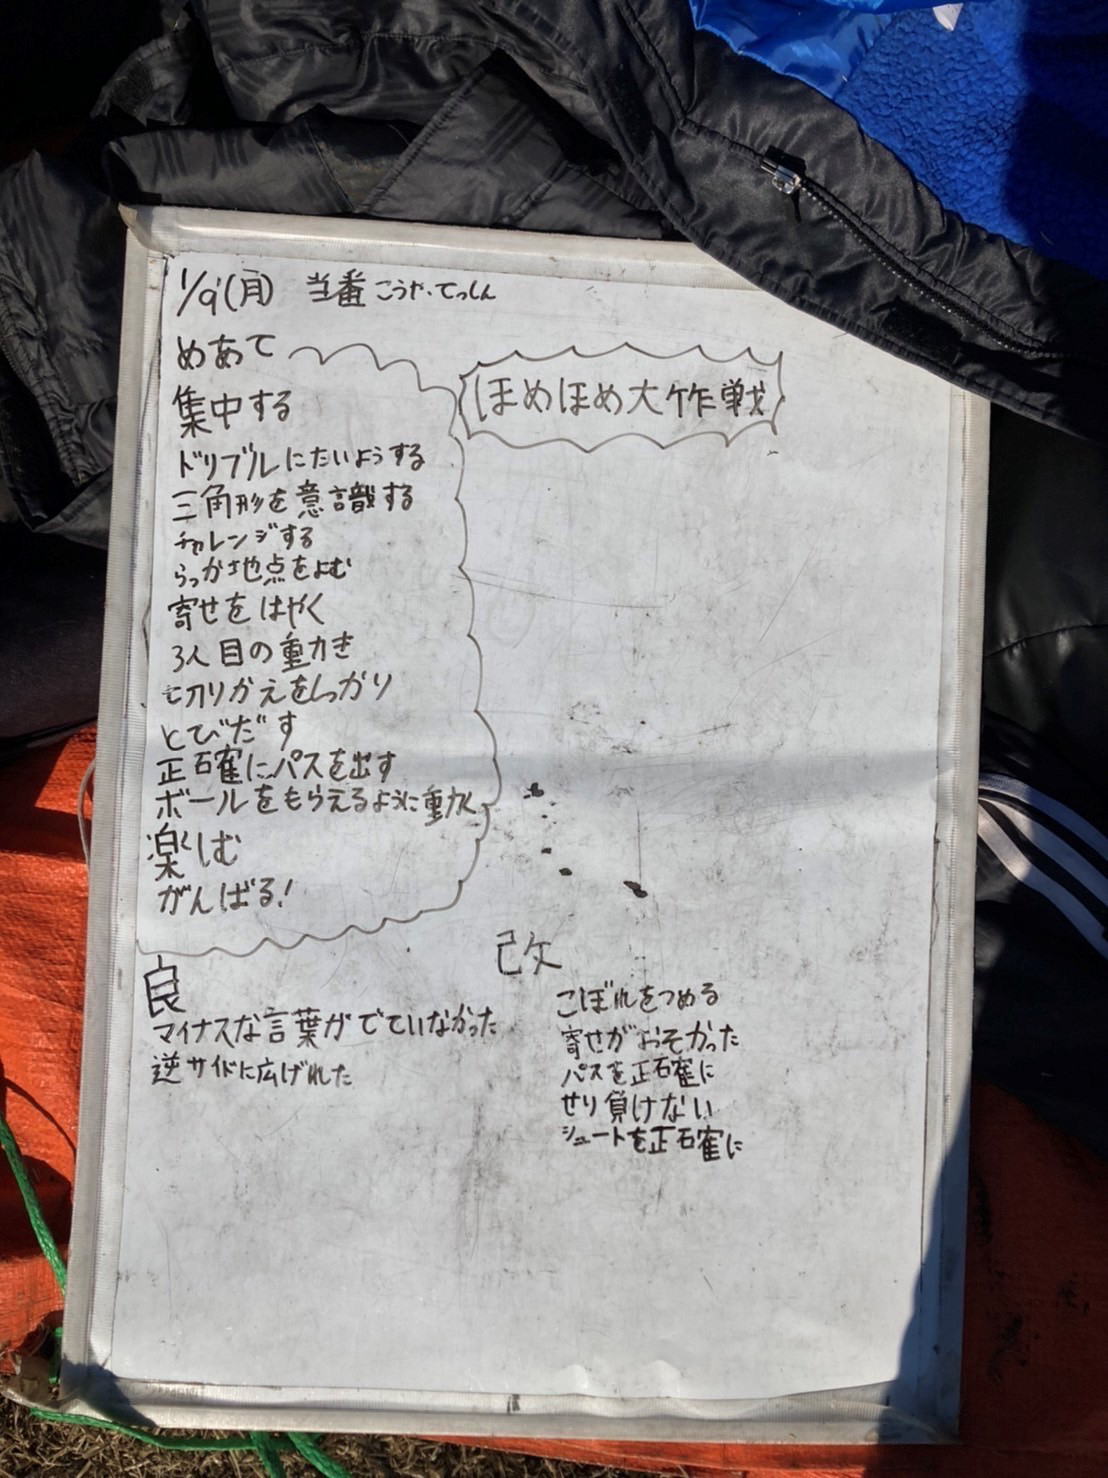 1/9(月) 当番 こうや・てっしん
めあて
ほめほめ大作戦
集中する
ドリブルにたいようする
三角形を意識する
チャレンジする
らっか地点をよむ
寄せをはやく
3人目の動き
切りかえをしっかり
とびだす
正確にパスを出す
ボールをもらえるように動く
楽しむ
がんばる!
良
マイナスな言葉がでていなかった
逆サイドに広げれた
改
こぼれをつめる
寄せがおそかった
パスを正確に
せり負けない
シュートを正確に